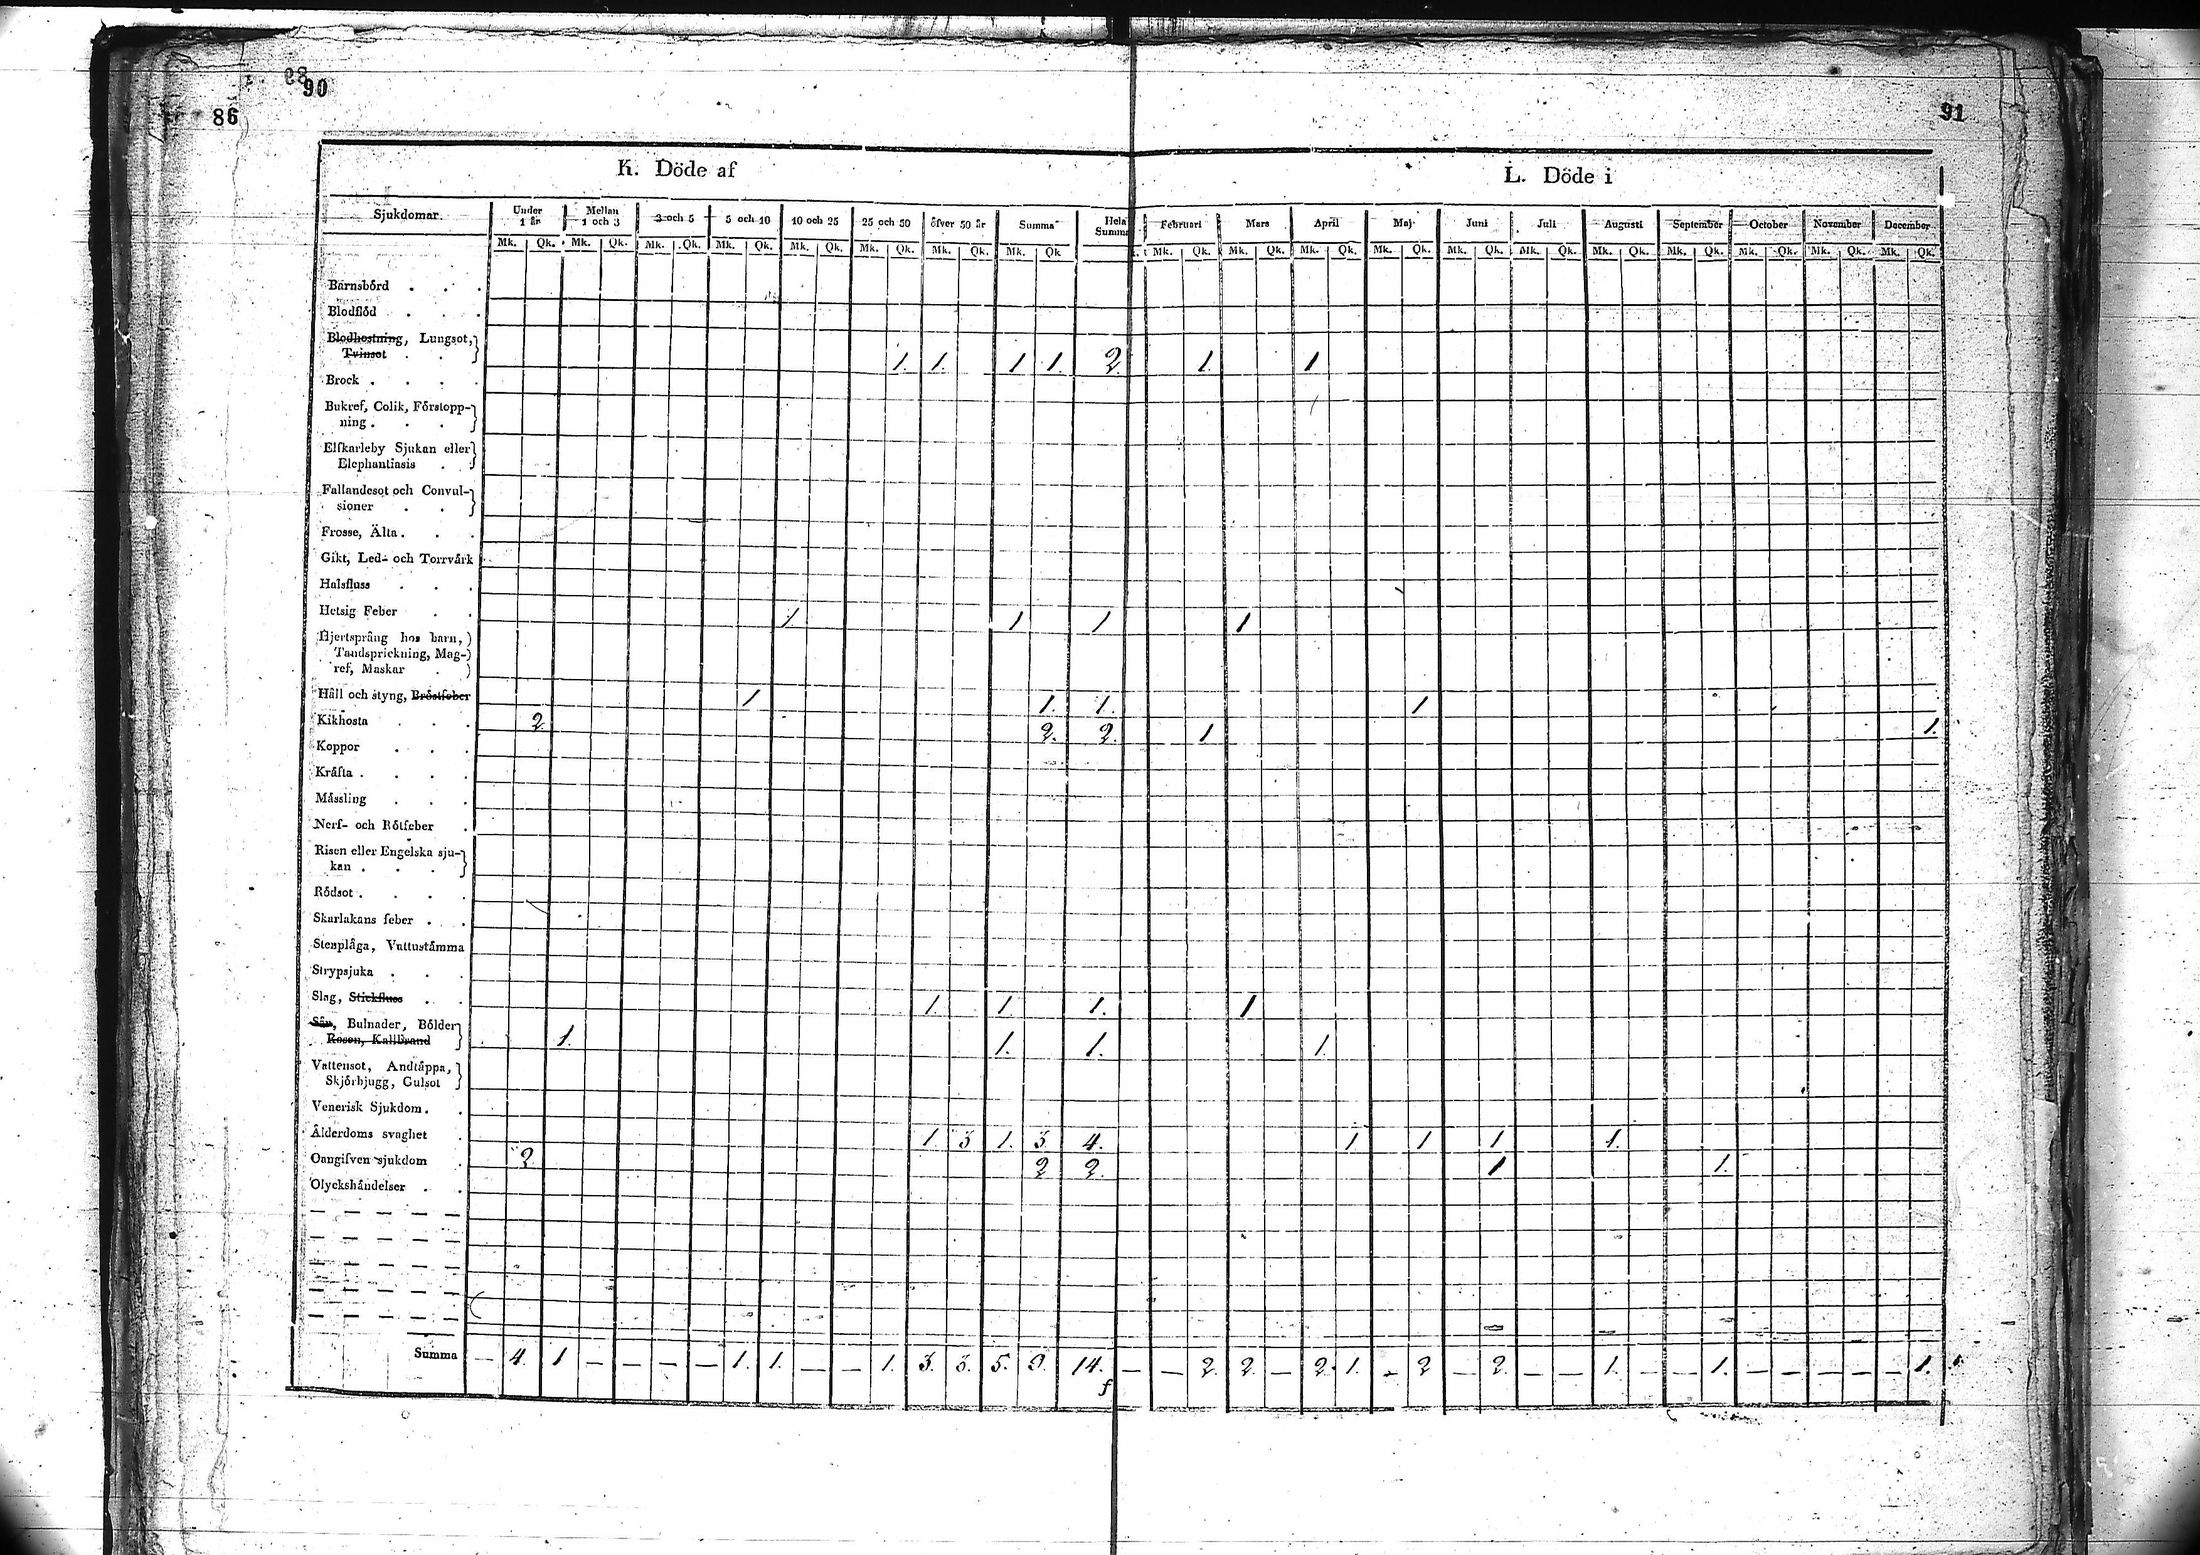 90
86
91
K. Döde af
L. Döde i
Sjukdomar. Under 1 år Mellan 1 och 3 3 och 5 5 och 10 10 och 25 25 och 50 öfver 50 år Summa Hela Summa Februari Mars April Maj Juni Juli Augusti September October November December
Mk. Qk. Mk. Qk. Mk. Qk. Mk. Qk. Mk. Qk. Mk. Qk. Mk. Qk. Mk. Qk Mk. Qk. Mk. Qk. Mk. Qk. Mk. Qk. Mk. Qk. Mk. Qk. Mk. Qk. Mk. Qk. Mk. Qk. Mk. Qk. Mk. Qk.
Barnsbörd . . .
Blodflöd . . .
Blodhostning, Lungsot,
Tvinsot . . 1. 1. 1 1. 2. 1. 1
Brock . . . .
Bukref, Colik, Förstopp-
ning . . .
Elfkarleby Sjukan eller
Elephantiasis .
Fallandesot och Convul-
sioner . .
Frosse, Älta . . .
Gikt, Led- och Torrvärk
Halsfluss . . .
Hetsig Feber . . 1 1 1 1
Hjertsprång hos barn,
Tandsprickning, Mag-
ref, Maskar .
Håll och styng, Bröstfeber 1 1. 1. 1
Kikhosta . . . 2 2. 2. 1 1.
Koppor . . .
Kräfta . . . .
Mässling . . .
Nerf- och Rötfeber .
Risen eller Engelska sju-
kan . . .
Rödsot . . . .
Skarlakans feber . .
Stenplåga, Vattustämma
Strypsjuka . . .
Slag, Stickfluss . . 1. 1. 1. 1
Sån, Bulnader, Bölder
Rosen, Kallbrand 1. 1. 1. 1.
Vattensot, Andtäppa,
Skjörbjugg, Gulsot
Venerisk Sjukdom . .
Ålderdoms svaghet . 1. 3 1. 3. 4. 1 1 1 1.
Oangifven sjukdom . 2. 2 2. 1 1.
Olyckshändelser . .
Summa — 4. 1 — — — — — 1. 1. — — 1. 3. 3. 5. 9. 14. — — 2 2. — 2. 1. — 2 — 2. — — 1. — — 1. — — — — — 1.